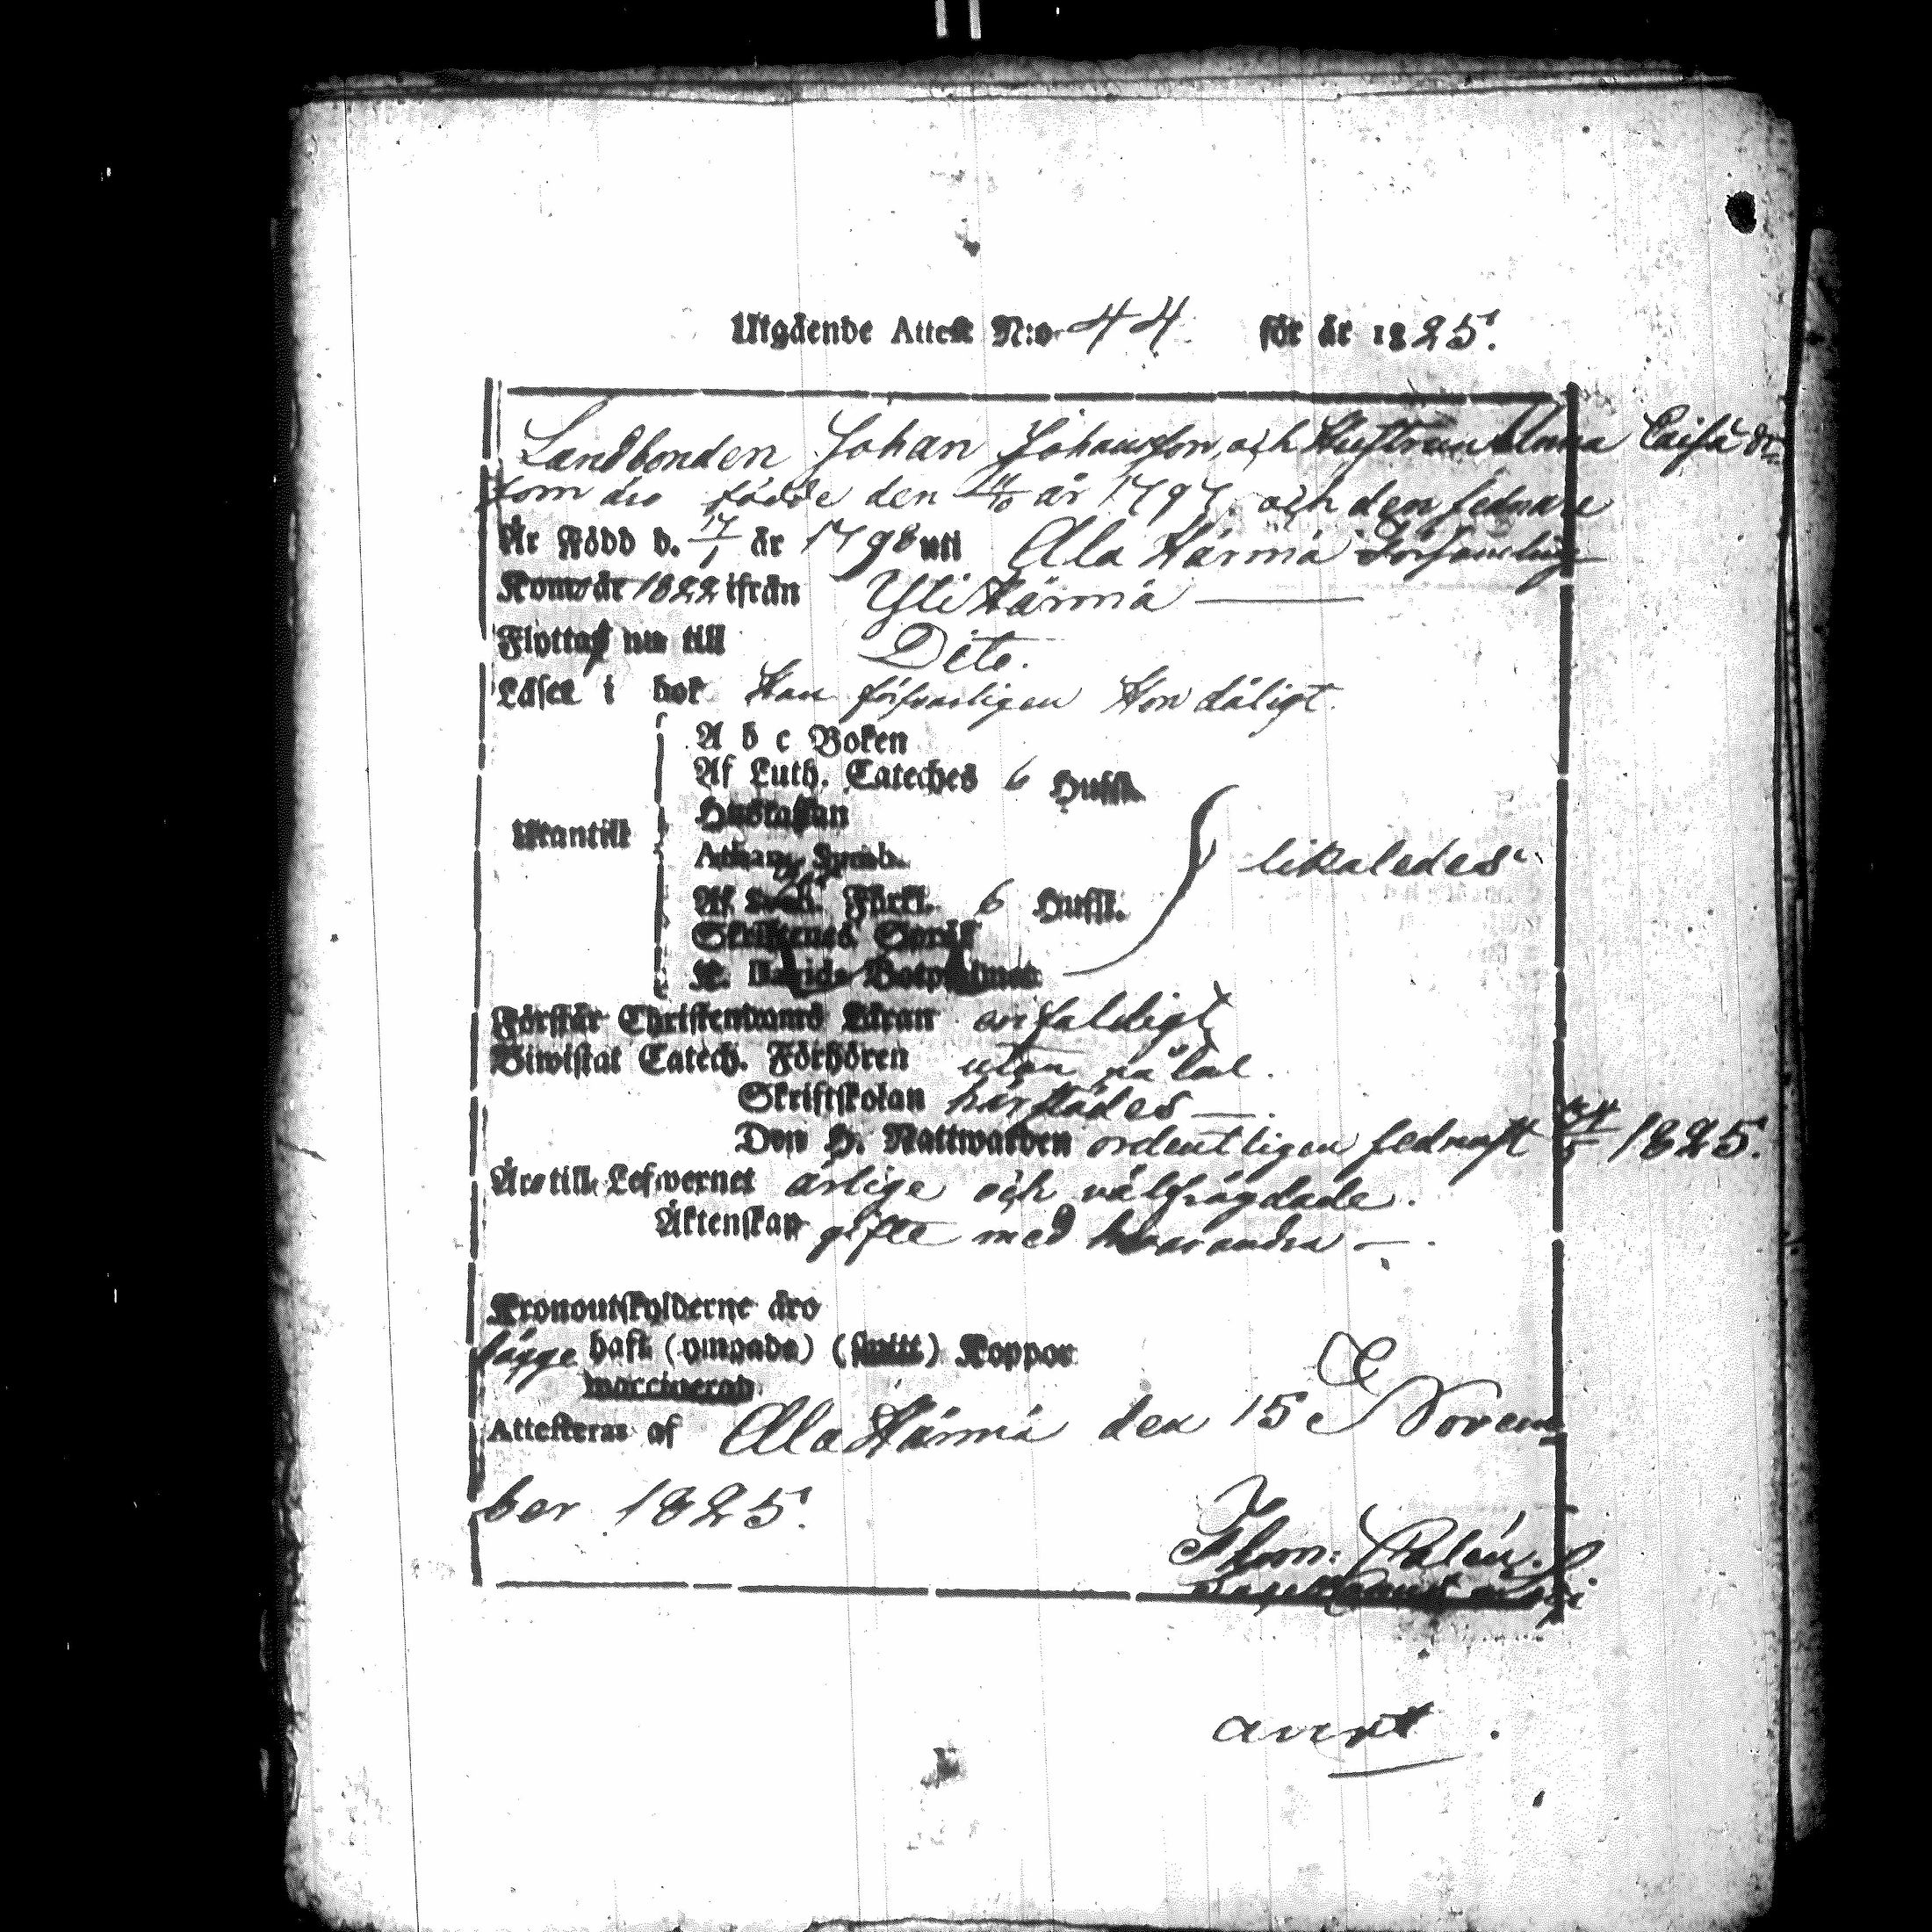 Utgående Attest N:o 44 för år 1825.
Landbonden Johan Johansson, och Hustrun Anna Caisa dr
som äro födde den år 1797. och den sednare
År Född d. 17/1 år 1798 uti Ala Härmä Församling
Kom år 1822 ifrån Ylihärmä —
Flyttar nu till Dito.
Läser i bok Han försvarligen Hon dåligt.
A b c Boken
Af Luth. Cateches 6 Hufst.
Hustaflan
Utantill
Athan. Symb. likaledes
Af Förkl. 6 Hufst.
Skriftenes Språk
K. Davids Botpsalmer
Förstår Christendoms Läran enfaldigt
Biwistat Catech. Förhören utan påtal.
Skriftskolan härstädes —.
Den H. Nattwarden ordentligen sednast 1825.
Äro till Lefwernet ärlige och välfrägdade.
Äktenskap gifte med hvarandra —.
Kronoutskylderne äro
bägge haft (ympade) Koppor
waccinerad
Attesteras af Ala Härmä den 15 Novem
ber 1825.
Thom: Palén.